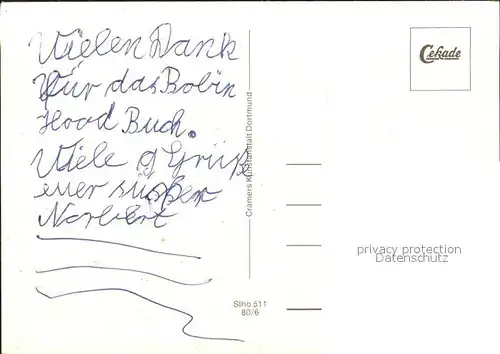 Vielen Dank
für das Bobin
Hood Buch.
Viele Grüß
euer süßer
Norbert
Cramers Kunstanstalt Dortmund
Slho 511
80/6
Cekade
privacy protection
Datenschutz